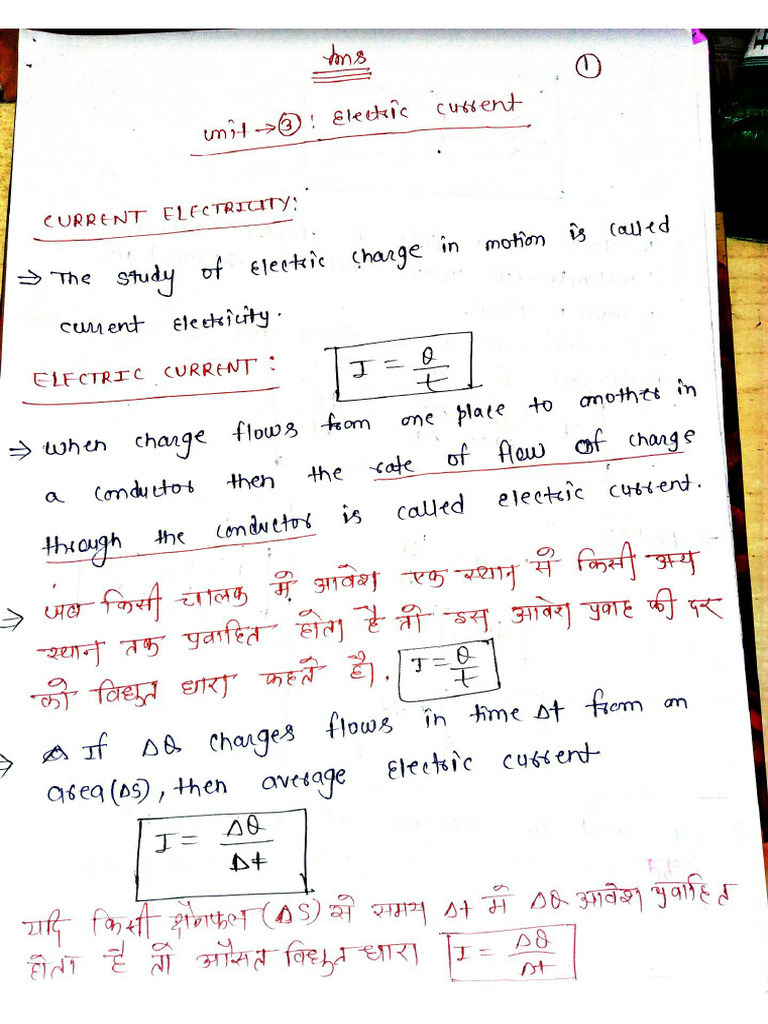 ms
①
Unit → ③ : Electric Current
CURRENT ELECTRICITY:
⇒ The study of Electric charge in motion is called
current Electricity.
ELECTRIC CURRENT : I = Q/t
⇒ When charge flows from one place to another in
a conductor then the rate of flow of charge
through the conductor is called electric current.
⇒ जब किसी चालक में आवेश एक स्थान से किसी अन्य
स्थान तक प्रवाहित होता है तो इस आवेश प्रवाह की दर
को विद्युत धारा कहते है। I = Q/t
⇒ If ΔQ charges flows in time Δt from an
area (ΔS), then average Electric current
I = ΔQ/Δt
यदि किसी क्षेत्रफल (ΔS) से समय Δt में ΔQ आवेश प्रवाहित
होता है तो औसत विद्युत धारा I = ΔQ/Δt